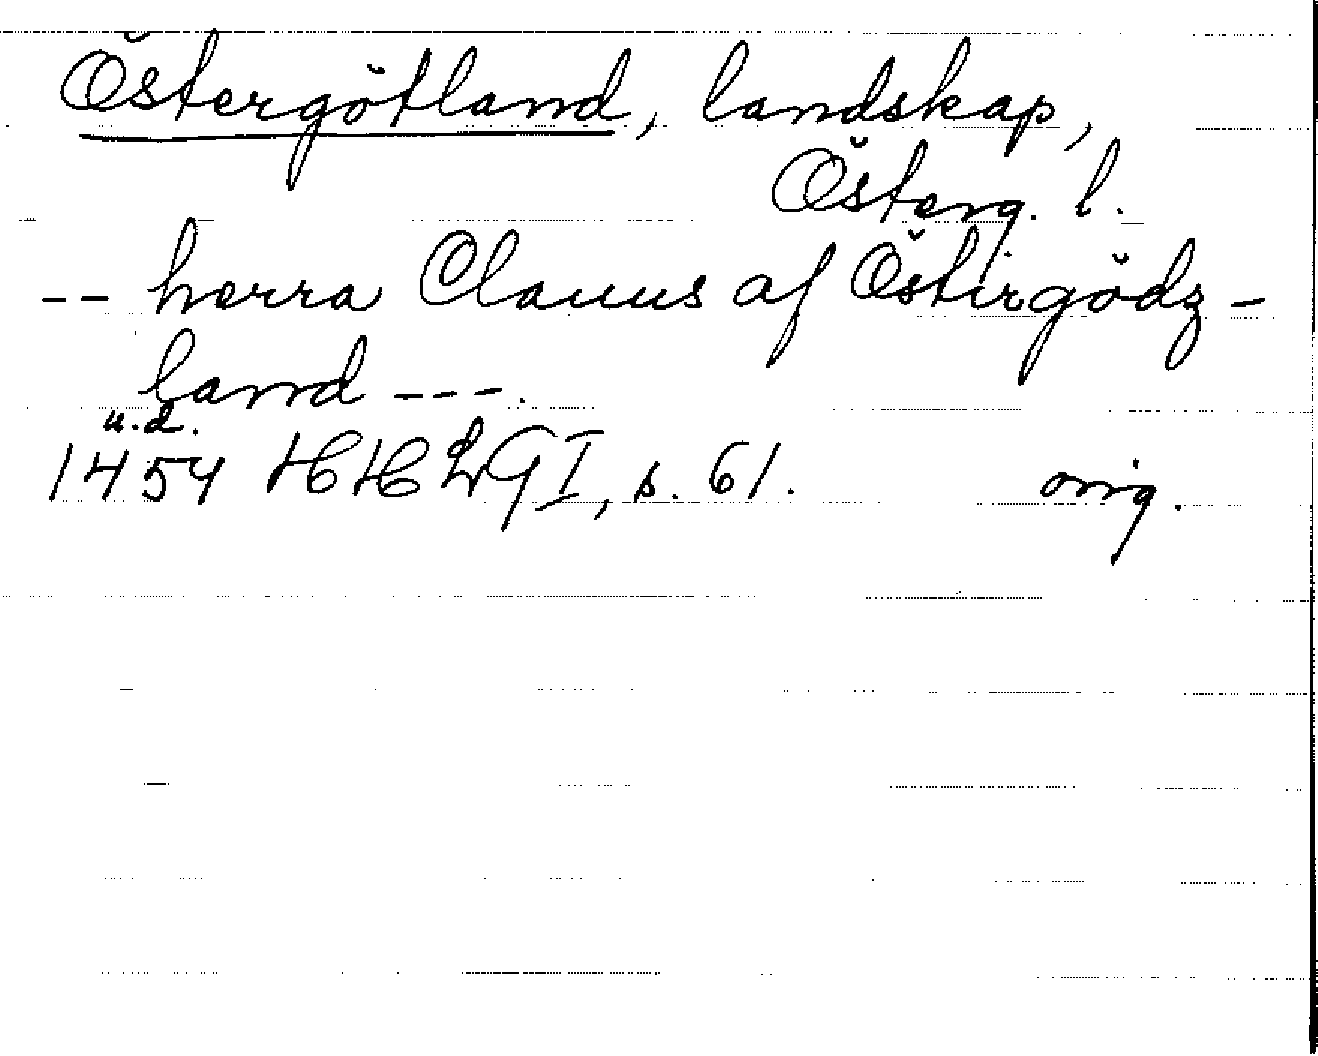 Östergötland, landskap,
Österg. l.
-- herra Clauus af Östirgödz-
land ---.
u.d.
1454 HH LG I, s. 61. orig.